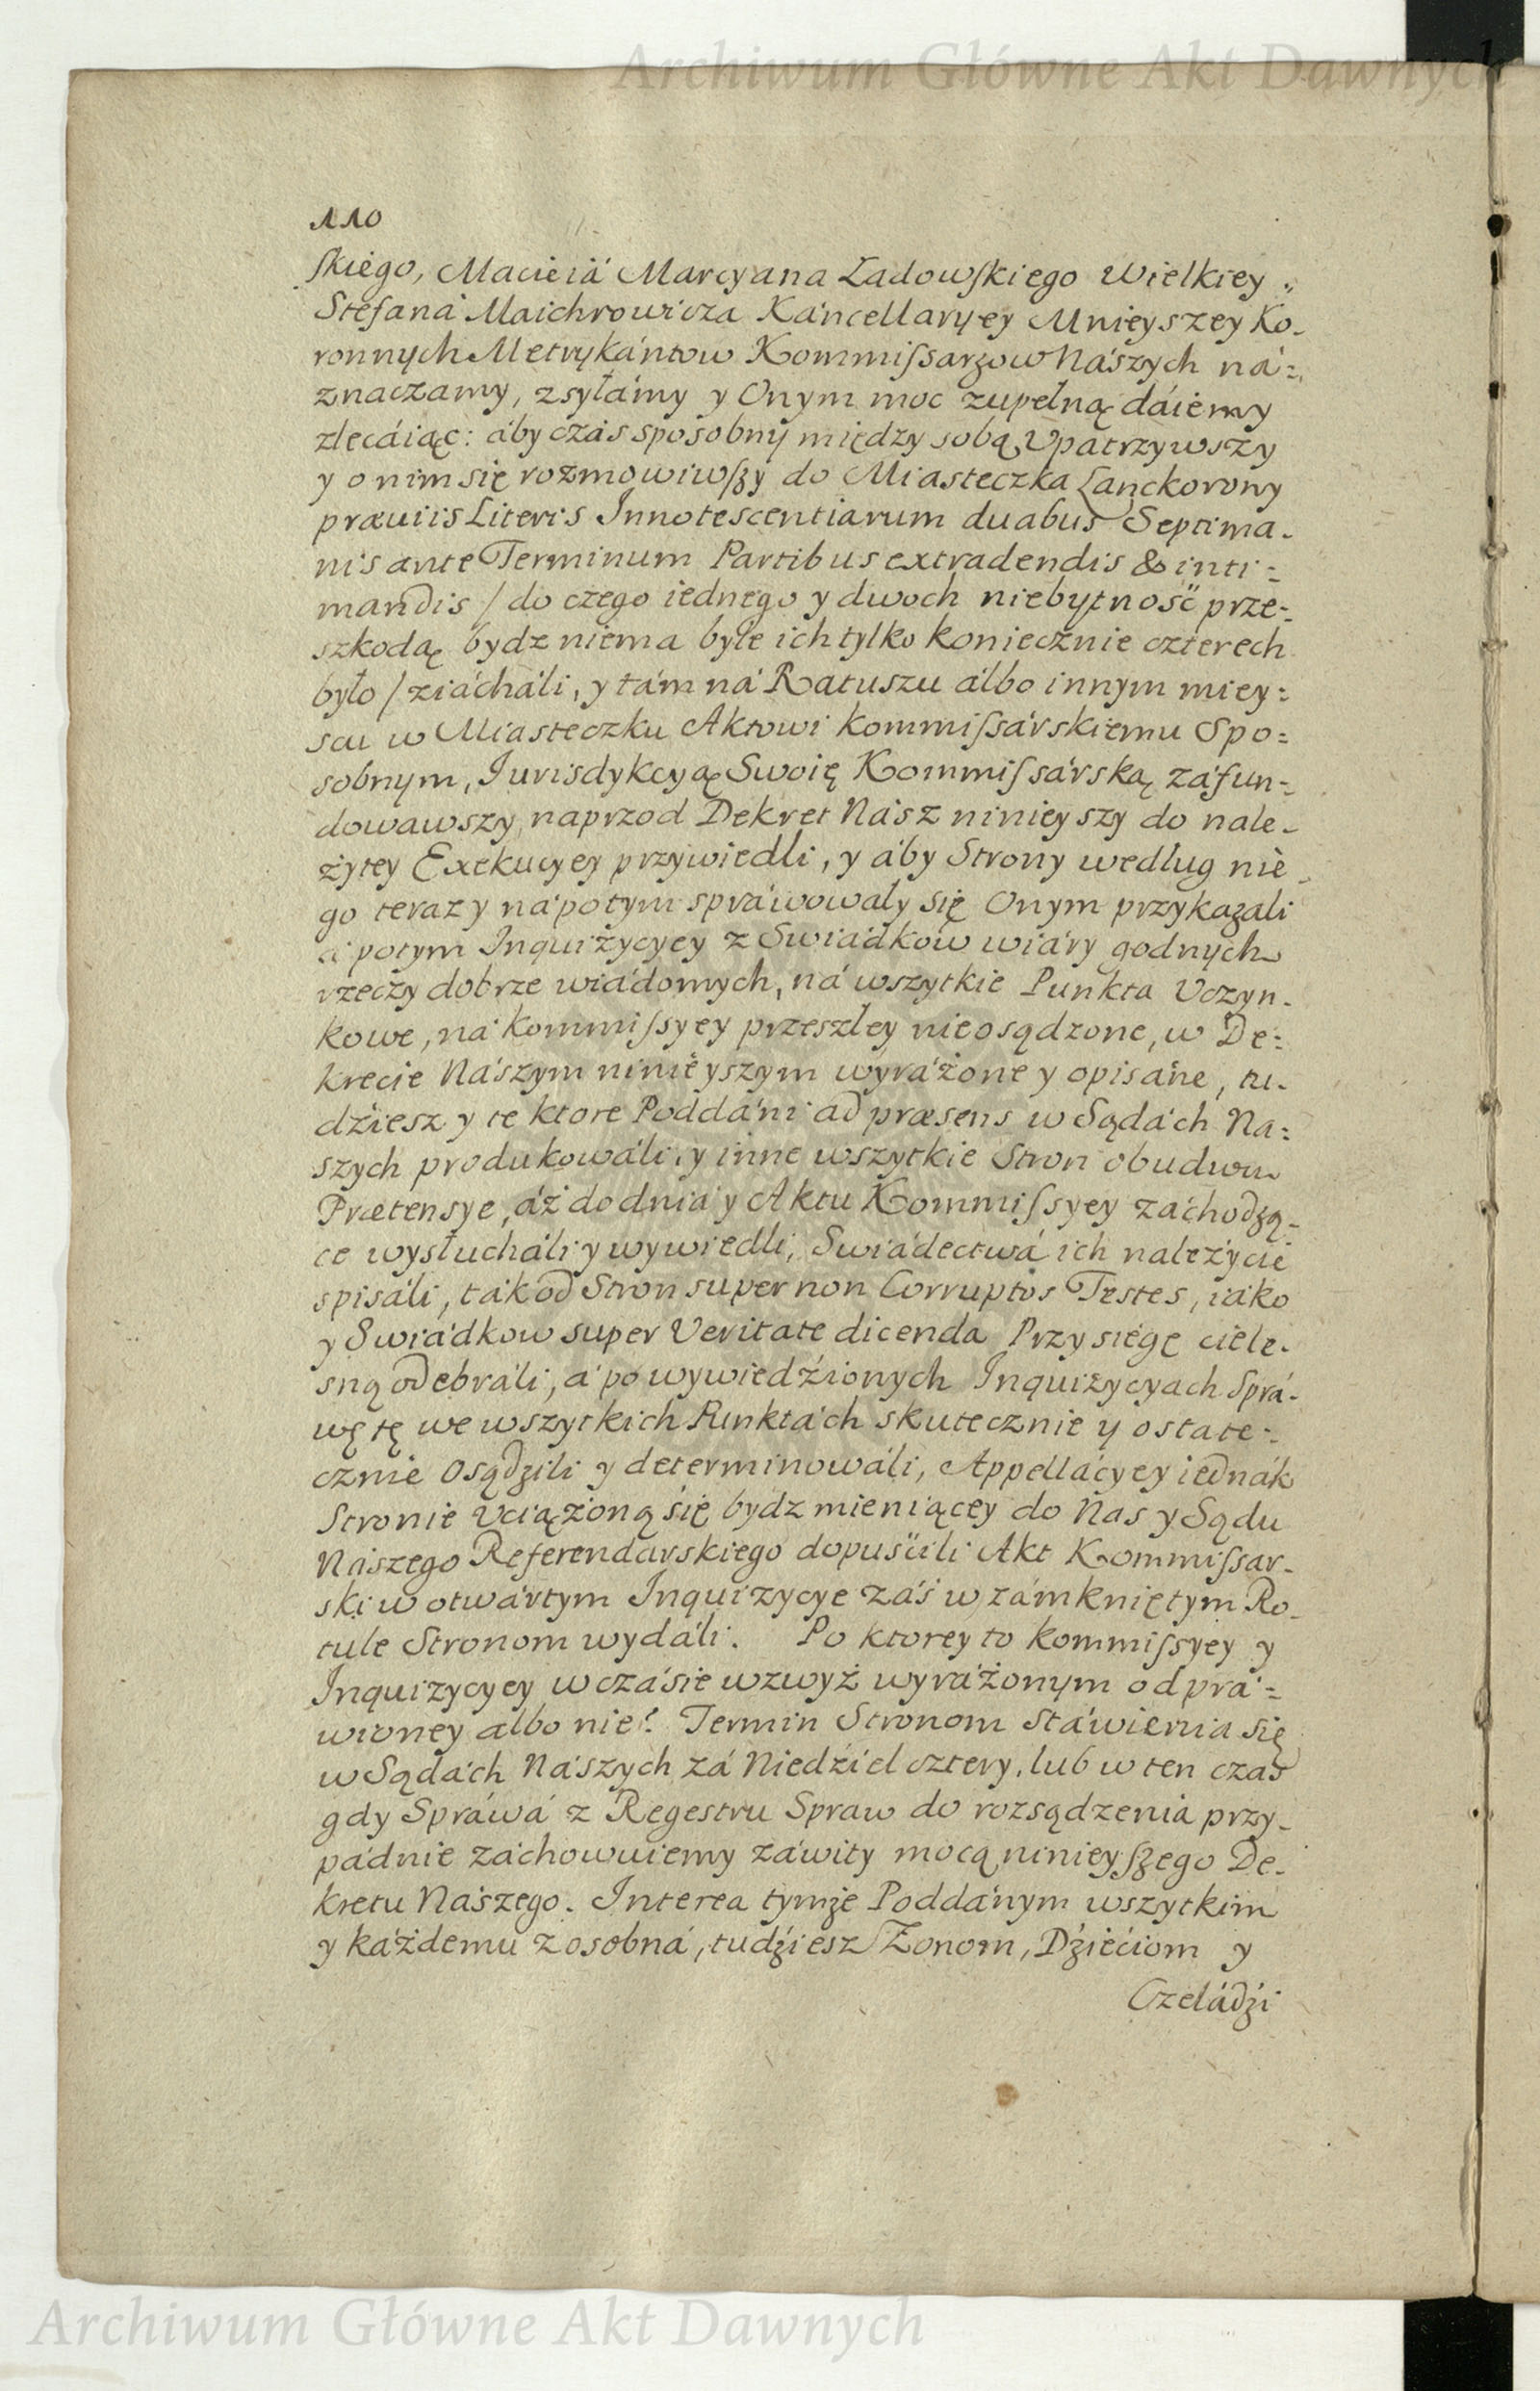 Archiwum Główne Akt Dawnych
110
skiego, Macieiá Marcyana Ladowskiego Wielkiey
Stefaná Maichrowicza Káncellaryey Mnieyszey Ko-
ronnych Metrykántow Kommissarzow Nászych ná=
znaczamy, zsyłámy y Onym moc zupełną dáiemy
zlecáiąc: áby czás sposobny między sobą Vpatrzywszy
y o nim się rozmowiwszy do Miasteczka Lanckorony
præviis Literis Innotescentiarum duabus Septima-
nis ante Terminum Partibus extradendis & inti=
mandis / do czego iednego y dwoch niebytność prze=
szkodą bydz niema byle ich tylko koniecznie czterech
było / ziácháli, y tám ná Ratuszu álbo innym miey=
scu w Miasteczku Aktowi kommissárskiemu Spo=
sobnym, Jurisdykcyą Swoię Kommissárską záfun=
dowawszy naprzod Dekret Nász ninieyszy do nale-
żytey Exekucyey przywiedli, y áby Strony według nie
go teraz y nápotym spráwowały się Onym przykazali
á potym Inquizycyey z Swiádkow wiáry godnych
rzeczy dobrze wiádomych, ná wszytkie Punkta Vczyn-
kowe, ná Kommissyey przeszley nieosądzone, w De=
krecie Nászym ninieyszym wyráżone y opisáne, tu-
dźiesz y te ktore Poddáni ad præsens w Sądách Na=
szych produkowáli, y inne wszytkie Stron obudwu
Prætensye, áż do dniá y Aktu Kommissyey záchodzą-
ce wysłucháli y wywiedli, Swiádectwá ich należycie
spisáli, ták od Stron super non Corruptos Testes, iáko
y Swiádkow super Veritate dicenda Przysięgę ciele-
sną odebráli, á po wywiedźionych Inquizycyach Sprá-
wę tę we wszytkich Punktách skutecznie y ostate-
cznie osądzili y determinowáli, Appellácyey iednák
Stronie Vciążoną się bydz mieniącey do Nas y Sądu
Nászego Referendarskiego dopuścili Akt Kommissar-
ski w otwártym Inquizycye záś w zámkniętym Ro-
tule Stronom wydáli. Po ktorey to kommissyey y
Inquizycyey w czásie wzwyż wyráżonym odprá=
wioney albo nie? Termin Stronom stáwienia się
w Sądách Nászych zá Niedźiel cztery, lub w ten czas
gdy Spráwá z Regestru Spraw do rozsądzenia przy-
pádnie záchowuiemy záwity mocą ninieyszego De-
kretu Nászego. Interea tymże Poddánym wszytkim
y káżdemu z osobná, tudźiesz Żonom, Dźieciom y
Czeládźi
Archiwum Główne Akt Dawnych